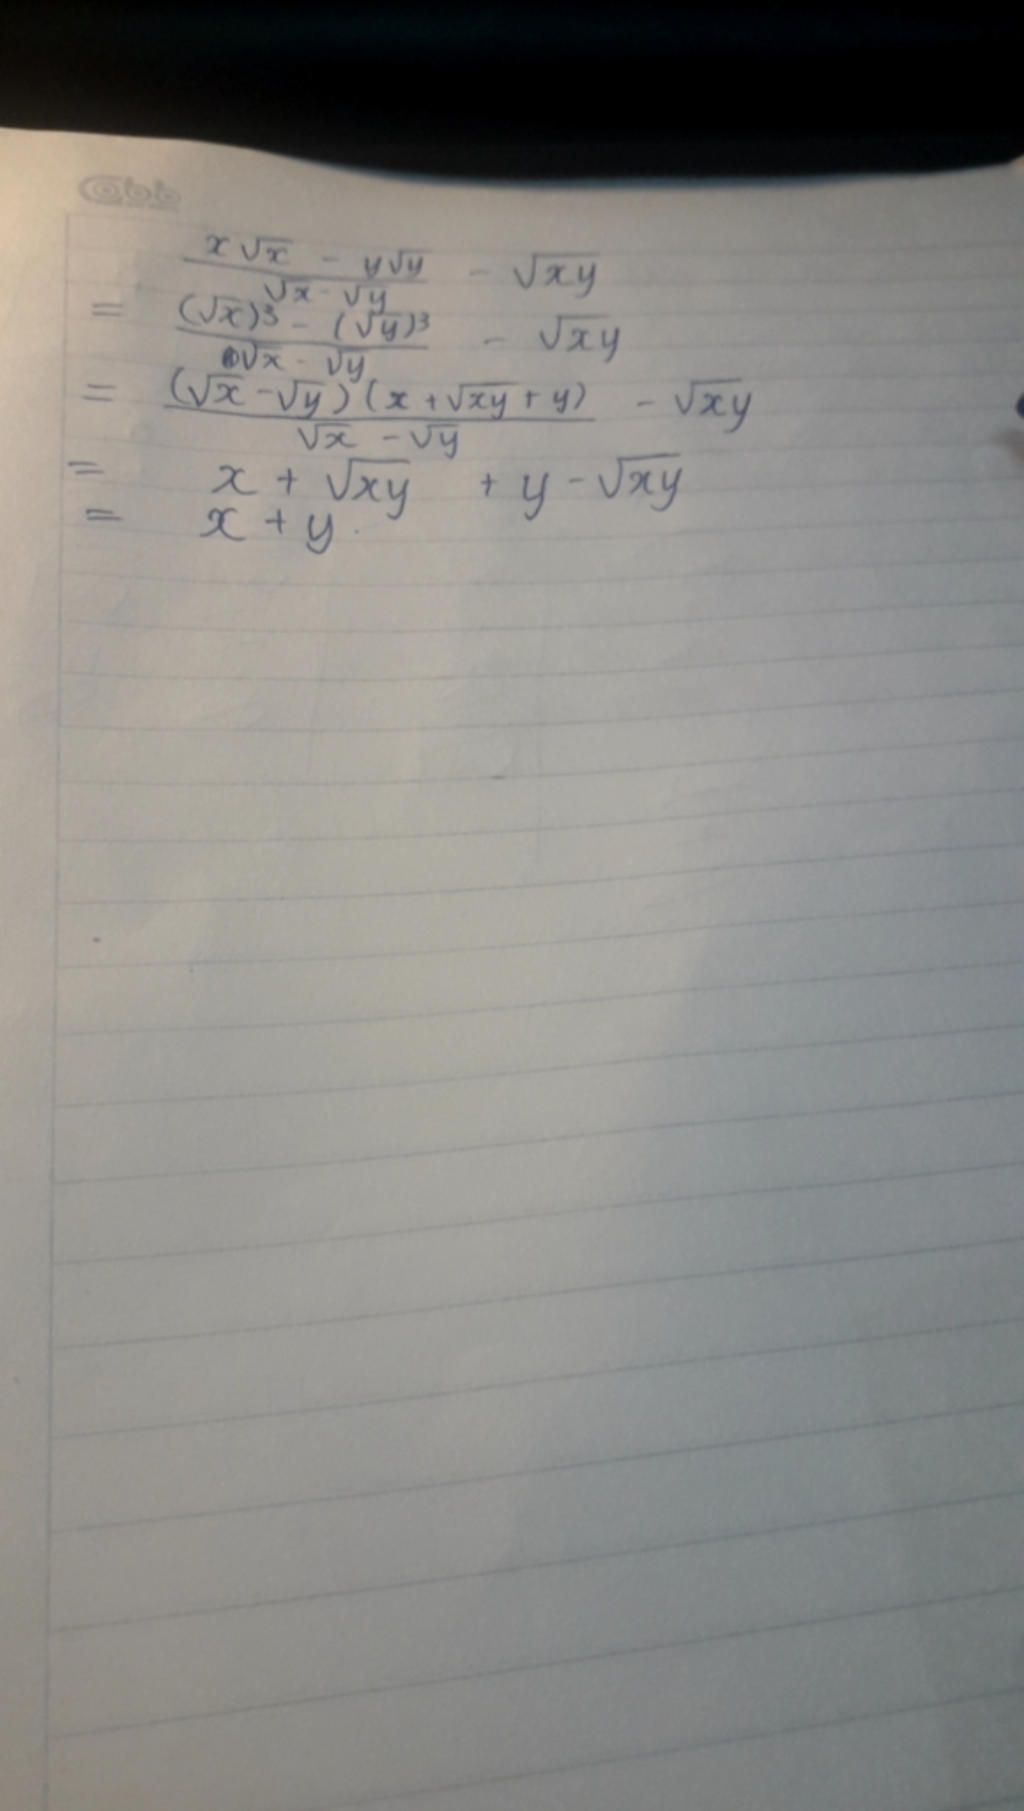 Cobb
x√x - y√y / √x - √y - √xy
= (√x)³ - (√y)³ / √x - √y - √xy
= (√x - √y)(x + √xy + y) / √x - √y - √xy
= x + √xy + y - √xy
= x + y.